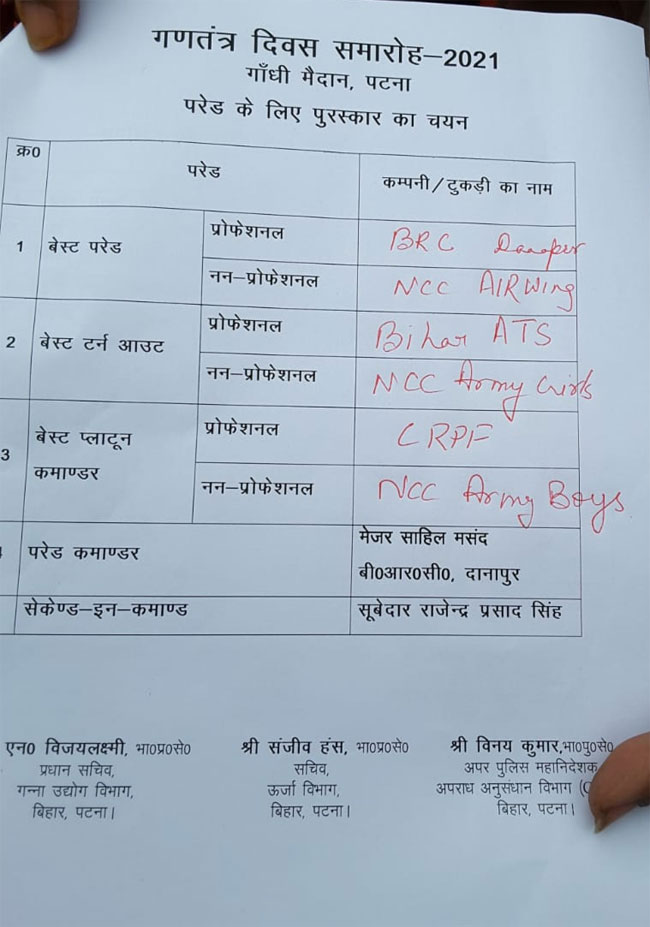 गणतंत्र दिवस समारोह–2021
गाँधी मैदान, पटना
परेड के लिए पुरस्कार का चयन
क्र0 परेड कम्पनी/टुकड़ी का नाम
1 बेस्ट परेड प्रोफेशनल BRC Danapur
नन–प्रोफेशनल NCC AIRWing
2 बेस्ट टर्न आउट प्रोफेशनल Bihar ATS
नन–प्रोफेशनल NCC Army Girls
3 बेस्ट प्लाटून कमाण्डर प्रोफेशनल CRPF
नन–प्रोफेशनल NCC Army Boys
परेड कमाण्डर मेजर साहिल मसंद
बी0आर0सी0, दानापुर
सेकेण्ड–इन–कमाण्ड सूबेदार राजेन्द्र प्रसाद सिंह
एन0 विजयलक्ष्मी, भा0प्र0से0 श्री संजीव हंस, भा0प्र0से0 श्री विनय कुमार,भा0पु0से0
प्रधान सचिव, सचिव, अपर पुलिस महानिदेशक
गन्ना उद्योग विभाग, ऊर्जा विभाग, अपराध अनुसंधान विभाग
बिहार, पटना। बिहार, पटना। बिहार, पटना।